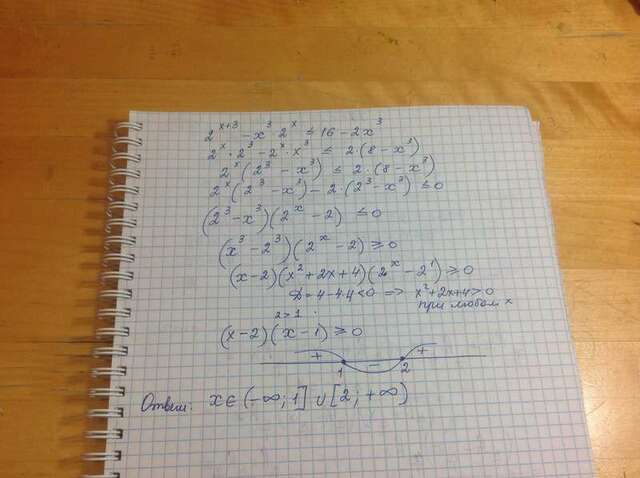 2^{x+3} - x^3 2^x ≤ 16 - 2x^3
2^x · 2^3 - 2^x · x^3 ≤ 2·(8 - x^3)
2^x (2^3 - x^3) ≤ 2·(8 - x^3)
2^x (2^3 - x^3) - 2·(2^3 - x^3) ≤ 0
(2^3 - x^3)(2^x - 2) ≤ 0
(x^3 - 2^3)(2^x - 2) ≥ 0
(x-2)(x^2+2x+4)(2^x - 2^1) ≥ 0
D = 4 - 4·4 < 0 => x^2+2x+4 > 0
при любом x
2 > 1
(x-2)(x-1) ≥ 0
+ - +
1 2
Ответ: x ∈ (-∞; 1] ∪ [2; +∞)